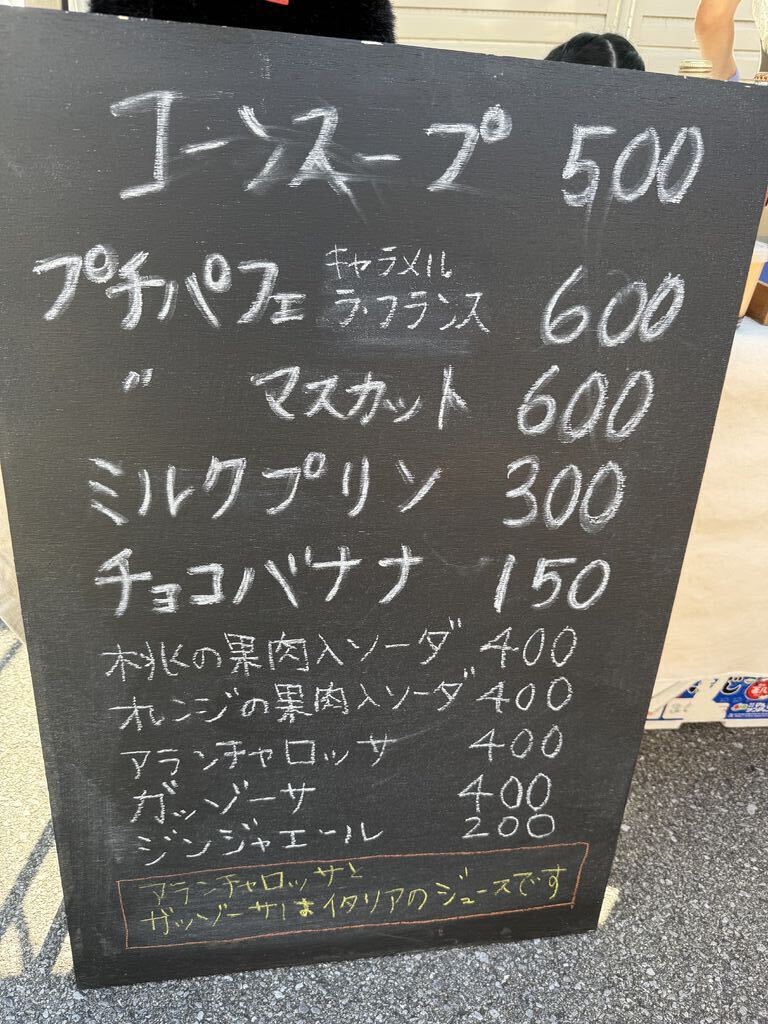 コーンスープ 500
プチパフェ キャラメル ラ・フランス 600
〃 マスカット 600
ミルクプリン 300
チョコバナナ 150
桃の果肉入ソーダ 400
オレンジの果肉入ソーダ 400
アランチャロッサ 400
ガッゾーサ 400
ジンジャエール 200
アランチャロッサと
ガッゾーサはイタリアのジュースです